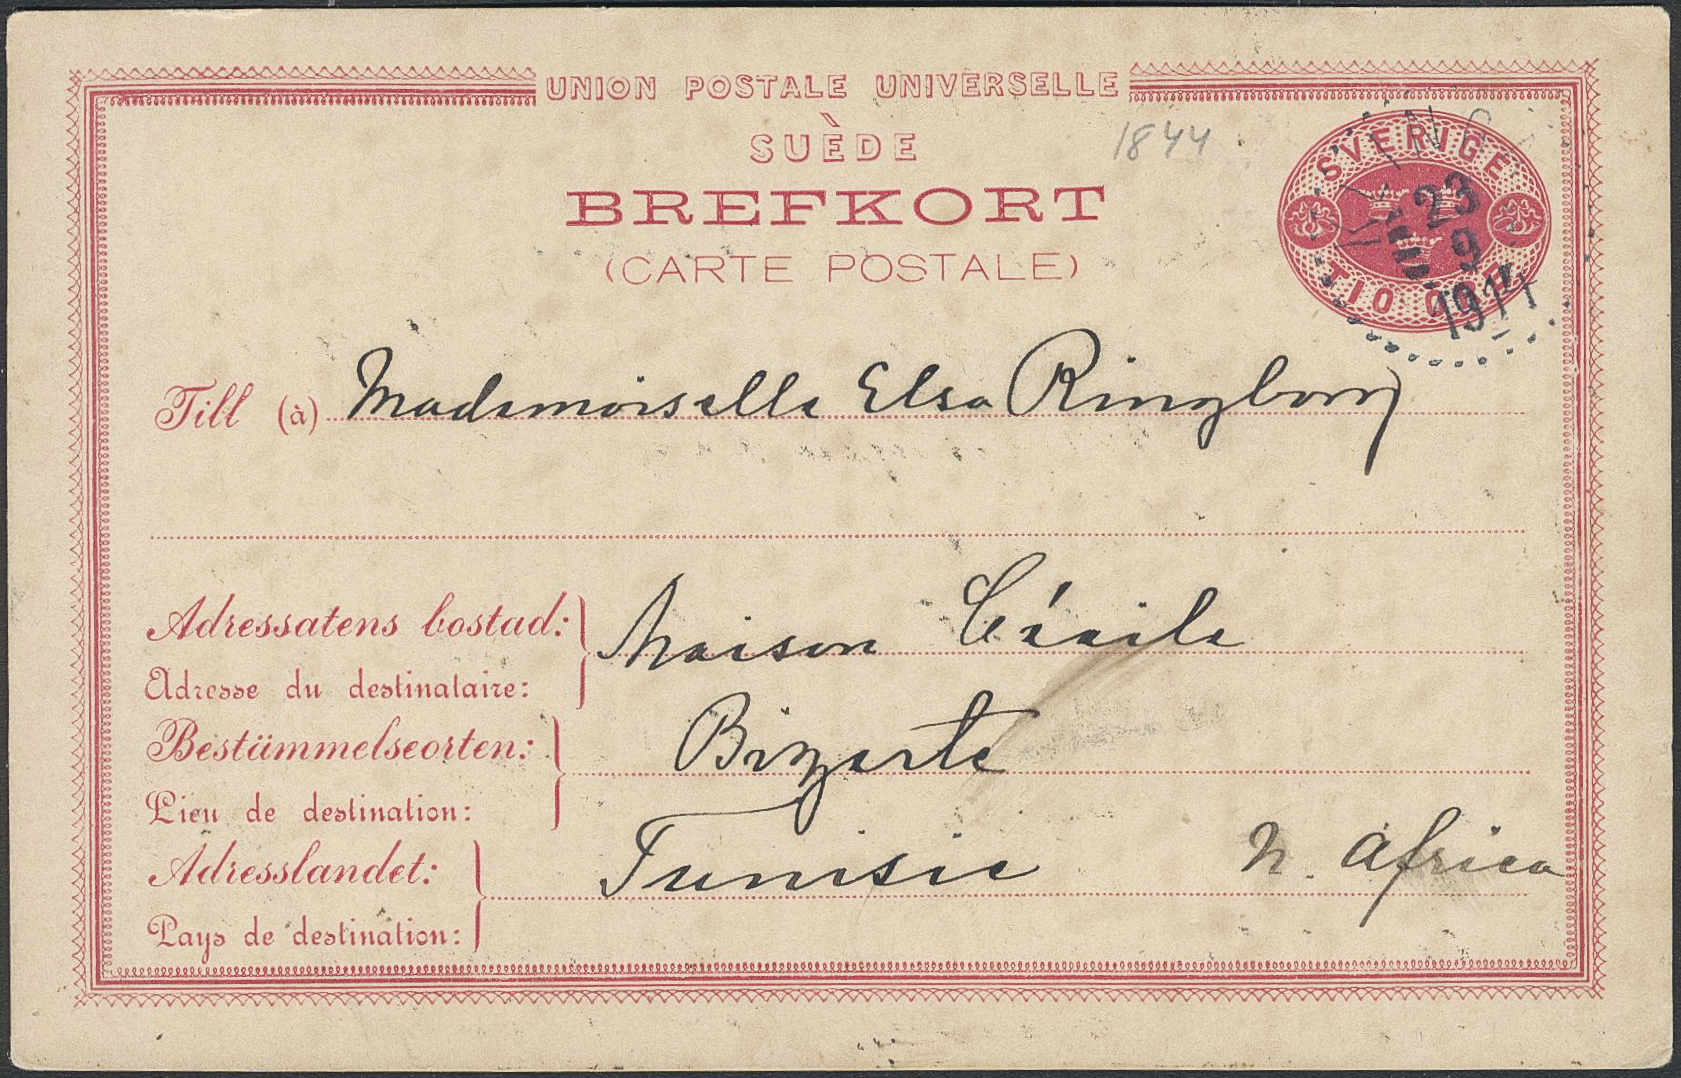 UNION POSTALE UNIVERSELLE
SUÈDE
1844
BREFKORT
(CARTE POSTALE)
SVERIGE
TIO ÖRE
23
9
1911
Till (à) Mademoiselle Elsa Ringborg
Adressatens bostad: Maison Cécile
Adresse du destinataire:
Bestämmelseorten: Bizerte
Lieu de destination:
Adresslandet: Tunisie N. Africa
Pays de destination: